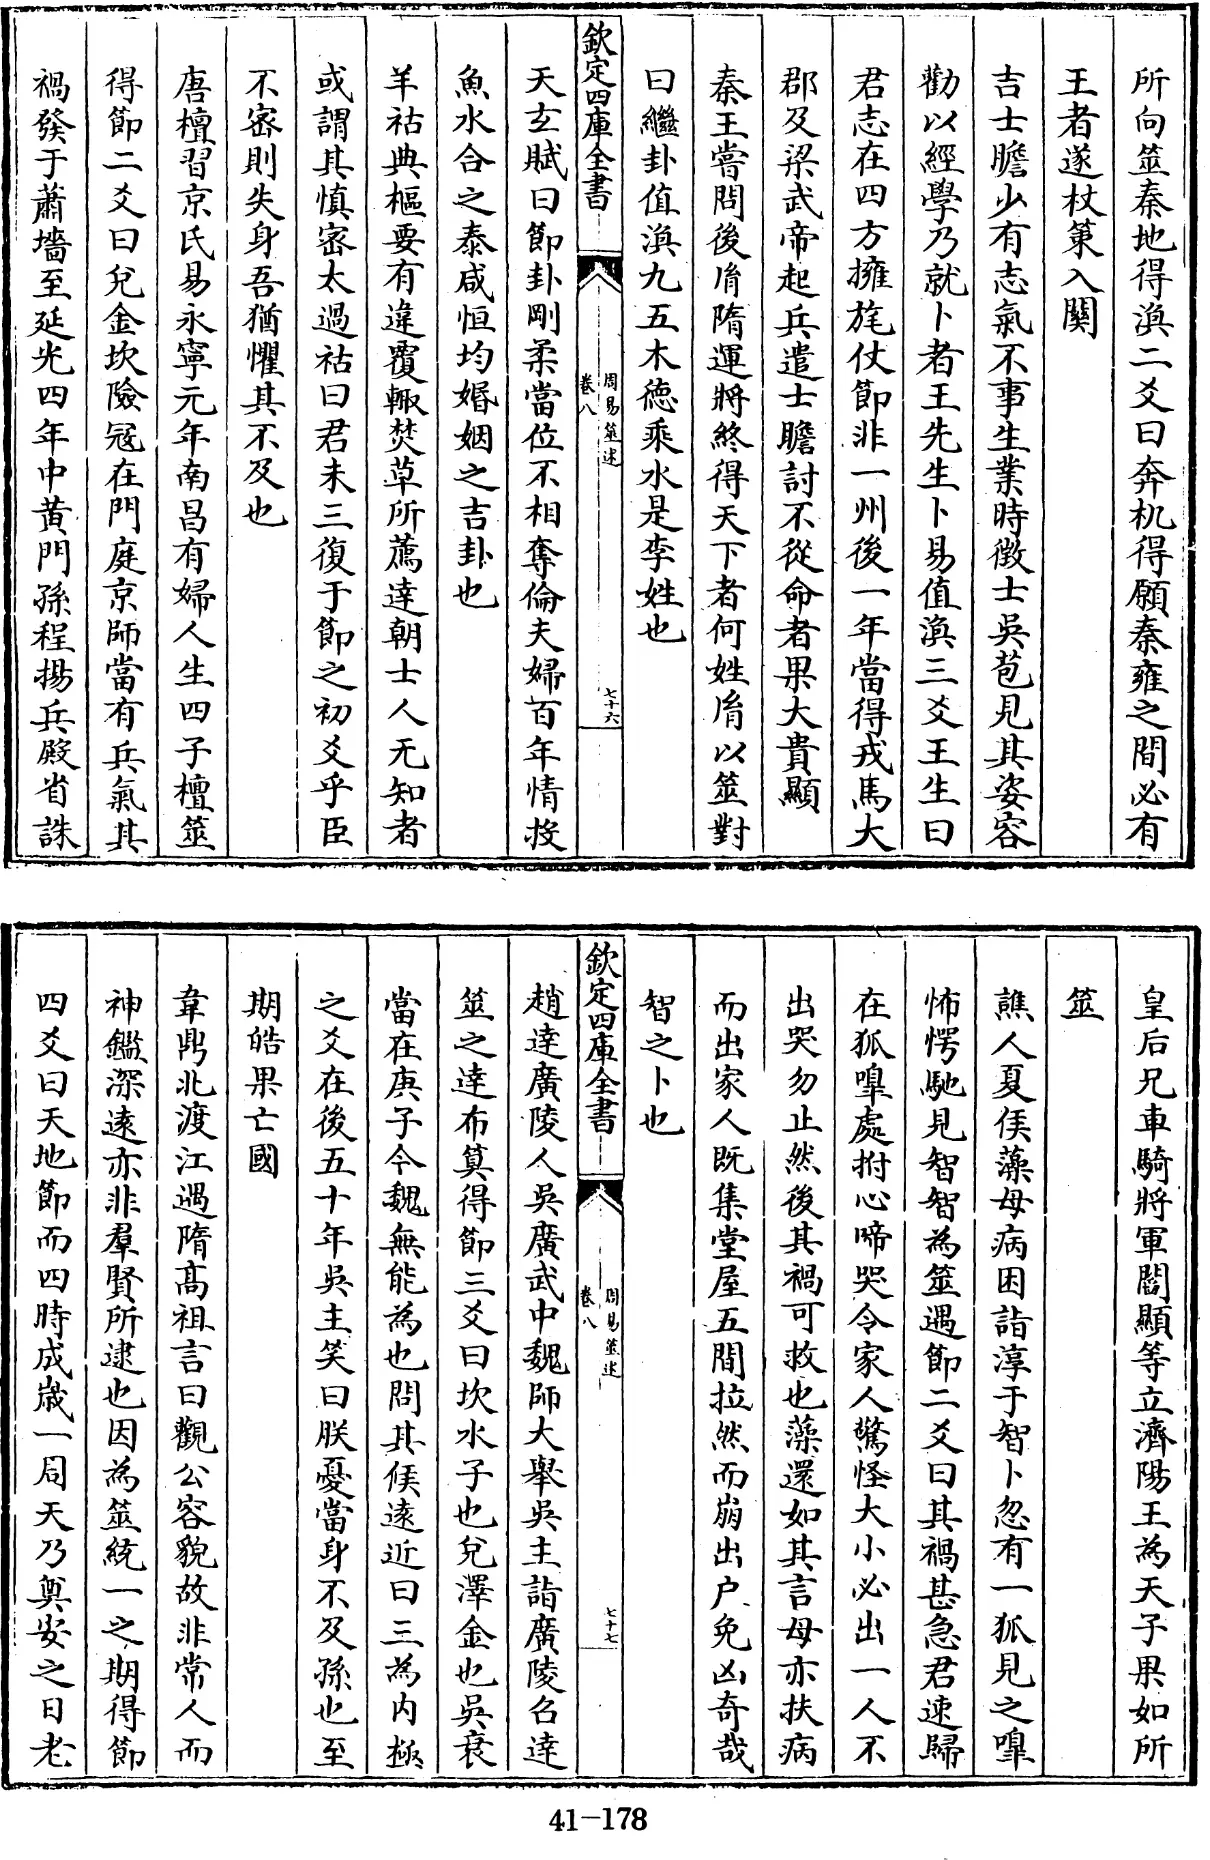 所向筮秦地得渙二爻曰奔机得願秦雍之間必有
王者遂杖策入關
吉士瞻少有志氣不事生業時徵士吳苞見其姿容
勸以經學乃就卜者王先生卜易值渙三爻王生曰
君志在四方擁旄仗節非一州後一年當得戎馬大
郡及梁武帝起兵遣士瞻討不從命者果大貴顯
秦王嘗問後胤隋運將終得天下者何姓胤以筮對
曰繼卦值渙九五木德乘水是李姓也
欽定四庫全書
周易筮述
卷八
七十六
天玄賦曰節卦剛柔當位不相奪倫夫婦百年情投
魚水合之泰咸恒均婚姻之吉卦也
羊祜典樞要有違覆輙焚草所薦達朝士人无知者
或謂其慎密太過祜曰君未三復于節之初爻乎臣
不密則失身吾猶懼其不及也
唐檀習京氏易永寧元年南昌有婦人生四子檀筮
得節二爻曰兌金坎險冦在門庭京師當有兵氣其
禍發于蕭墻至延光四年中黃門孫程揚兵殿省誅
皇后兄車騎將軍閻顯等立濟陽王為天子果如所
筮
譙人夏侯藻母病困詣淳于智卜忽有一狐見之嘷
怖愕馳見智智為筮遇節二爻曰其禍甚急君速歸
在狐嘷處拊心啼哭令家人驚怪大小必出一人不
出哭勿止然後其禍可救也藻還如其言母亦扶病
而出家人既集堂屋五間拉然而崩出户免凶奇哉
智之卜也
欽定四庫全書
周易筮述
卷八
七十七
趙達廣陵人吳廣武中魏師大舉吳主詣廣陵召達
筮之達布算得節三爻曰坎水子也兌澤金也吳衰
當在庚子今魏無能為也問其候遠近曰三為内極
之爻在後五十年吳主笑曰朕憂當身不及孫也至
期皓果亡國
韋鼎北渡江遇隋高祖言曰觀公容貌故非常人而
神鑑深遠亦非羣賢所逮也因為筮統一之期得節
四爻曰天地節而四時成歲一周天乃奠安之日老
41-178